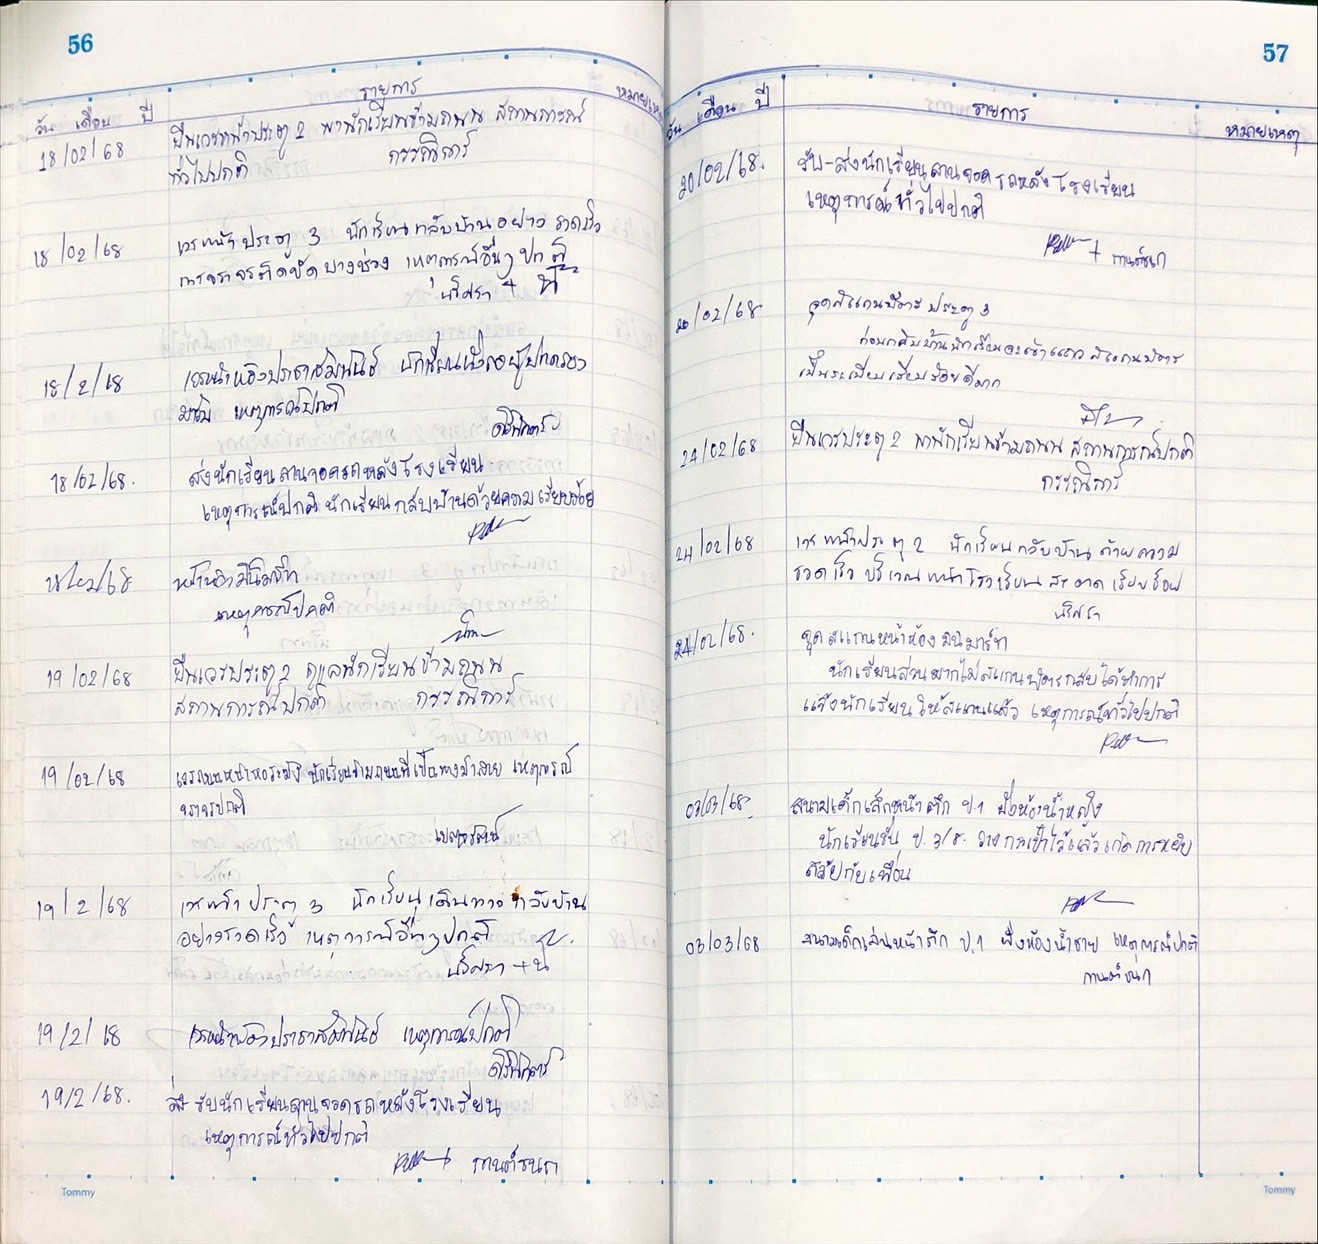 56
วัน เดือน ปี
รายการ
หมายเหตุ
18/02/68
ยืนเวรหน้าประตู 2 พานักเรียนข้ามถนน สถานการณ์
ทั่วไปปกติ
กรรณิการ์
18/02/68
เวรหน้าประตู 3 นักเรียนกลับบ้านอย่างรวดเร็ว
การจราจรติดขัดบางช่วง เหตุการณ์อื่นๆ ปกติ
นริศรา +
18/2/68
เวรหน้าห้องประชาสัมพันธ์ นักเรียนนั่งรอผู้ปกครอง
มารับ เหตุการณ์ปกติ
18/02/68.
ส่งนักเรียนลานจอดรถหลังโรงเรียน
เหตุการณ์ปกติ นักเรียนกลับบ้านด้วยความเรียบร้อย
18/02/68
หน้าห้องมินิมาร์ท
เหตุการณ์ปกติ
19/02/68
ยืนเวรประตู 2 ดูแลนักเรียนข้ามถนน
สถานการณ์ปกติ กรรณิการ์
19/02/68
นักเรียนข้ามถนนที่เป็นทางม้าลาย เหตุการณ์
จราจรปกติ
19/2/68
เวรหน้าประตู 3 นักเรียนเดินทางกลับบ้าน
อย่างรวดเร็ว เหตุการณ์อื่นๆ ปกติ
นริศรา +
19/2/68
เวรหน้าห้องประชาสัมพันธ์ เหตุการณ์ปกติ
19/2/68.
ส่ง รับนักเรียนลานจอดรถหลังโรงเรียน
เหตุการณ์ทั่วไปปกติ
+ กานต์ชนก
Tommy
57
วัน เดือน ปี
รายการ
หมายเหตุ
20/02/68.
รับ-ส่งนักเรียนลานจอดรถหลังโรงเรียน
เหตุการณ์ทั่วไปปกติ
+ กานต์ชนก
20/02/68
จุดสแกนบัตร ประตู 3
ก่อนกลับบ้านนักเรียนจะเข้าแถวสแกนบัตร
เป็นระเบียบเรียบร้อยดีมาก
24/02/68
ยืนเวรประตู 2 พานักเรียนข้ามถนน สถานการณ์ปกติ
กรรณิการ์
24/02/68
เวรหน้าประตู 2 นักเรียนกลับบ้านด้วยความ
รวดเร็ว บริเวณหน้าโรงเรียนสะอาดเรียบร้อย
นริศรา
24/02/68.
จุดสแกนหน้าห้องมินิมาร์ท
นักเรียนส่วนมากไม่สแกนบัตรกลับได้ทำการ
แจ้งนักเรียนให้สแกนแล้ว เหตุการณ์ทั่วไปปกติ
03/03/68.
สนามเด็กเล็กหน้าตึก ป.1 ฝั่งห้องน้ำหญิง
นักเรียนชั้น ป.3/8. วางกระเป๋าไว้แล้วเกิดการหยิบ
สลับกับเพื่อน
03/03/68
สนามเด็กเล่นหน้าตึก ป.1 ฝั่งห้องน้ำชาย เหตุการณ์ปกติ
กานต์ชนก
Tommy